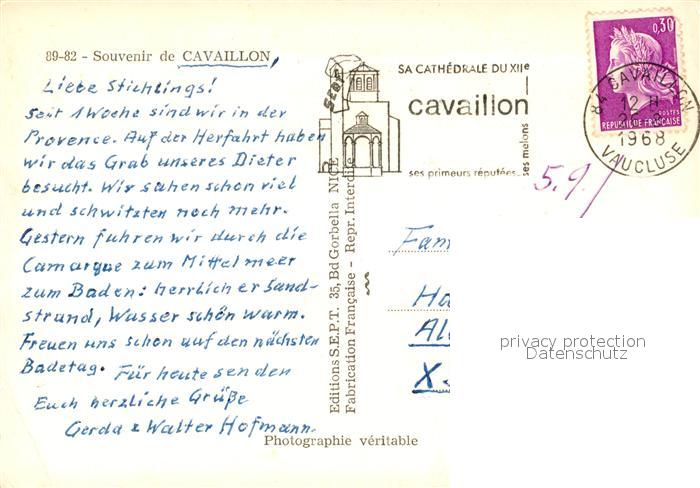 89-82 - Souvenir de CAVAILLON,
Liebe Stichlings!
Seit 1 Woche sind wir in der
Provence. Auf der Herfahrt haben
wir das Grab unseres Dieter
besucht. Wir sahen schon viel
und schwitzten noch mehr.
Gestern fuhren wir durch die
Camargue zum Mittelmeer
zum Baden: herrlicher Sand-
strand, Wasser schön warm.
Freuen uns schon auf den nächsten
Badetag. Für heute senden
Euch herzliche Grüße
Gerda & Walter Hofmann.
Editions S.E.P.T. 35, Bd Gorbella NICE
Fabrication Française - Repr. Interdite
Photographie véritable
SA CATHÉDRALE DU XIIe
cavaillon
ses primeurs réputées
ses melons
0,30
POSTES
REPUBLIQUE FRANÇAISE
84 CAVAILLON
12 H
1968
VAUCLUSE
5.9.
Fam
Ha
Al
X
privacy protection
Datenschutz